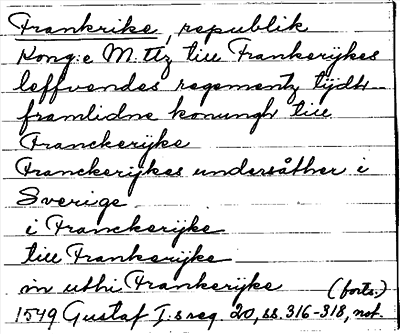 Frankrike, republik
Kong:e M.ttz till Frankerijkes
leffvendes regementz tijdh
framlidne konungh till
Franckerijke
Franckerijkes undersåther i
Sverige
i Franckerijke
till Frankerijke
in uthi Frankerijke (forts.)
1549 Gustaf I:s reg. 20, ss. 316-318, not.